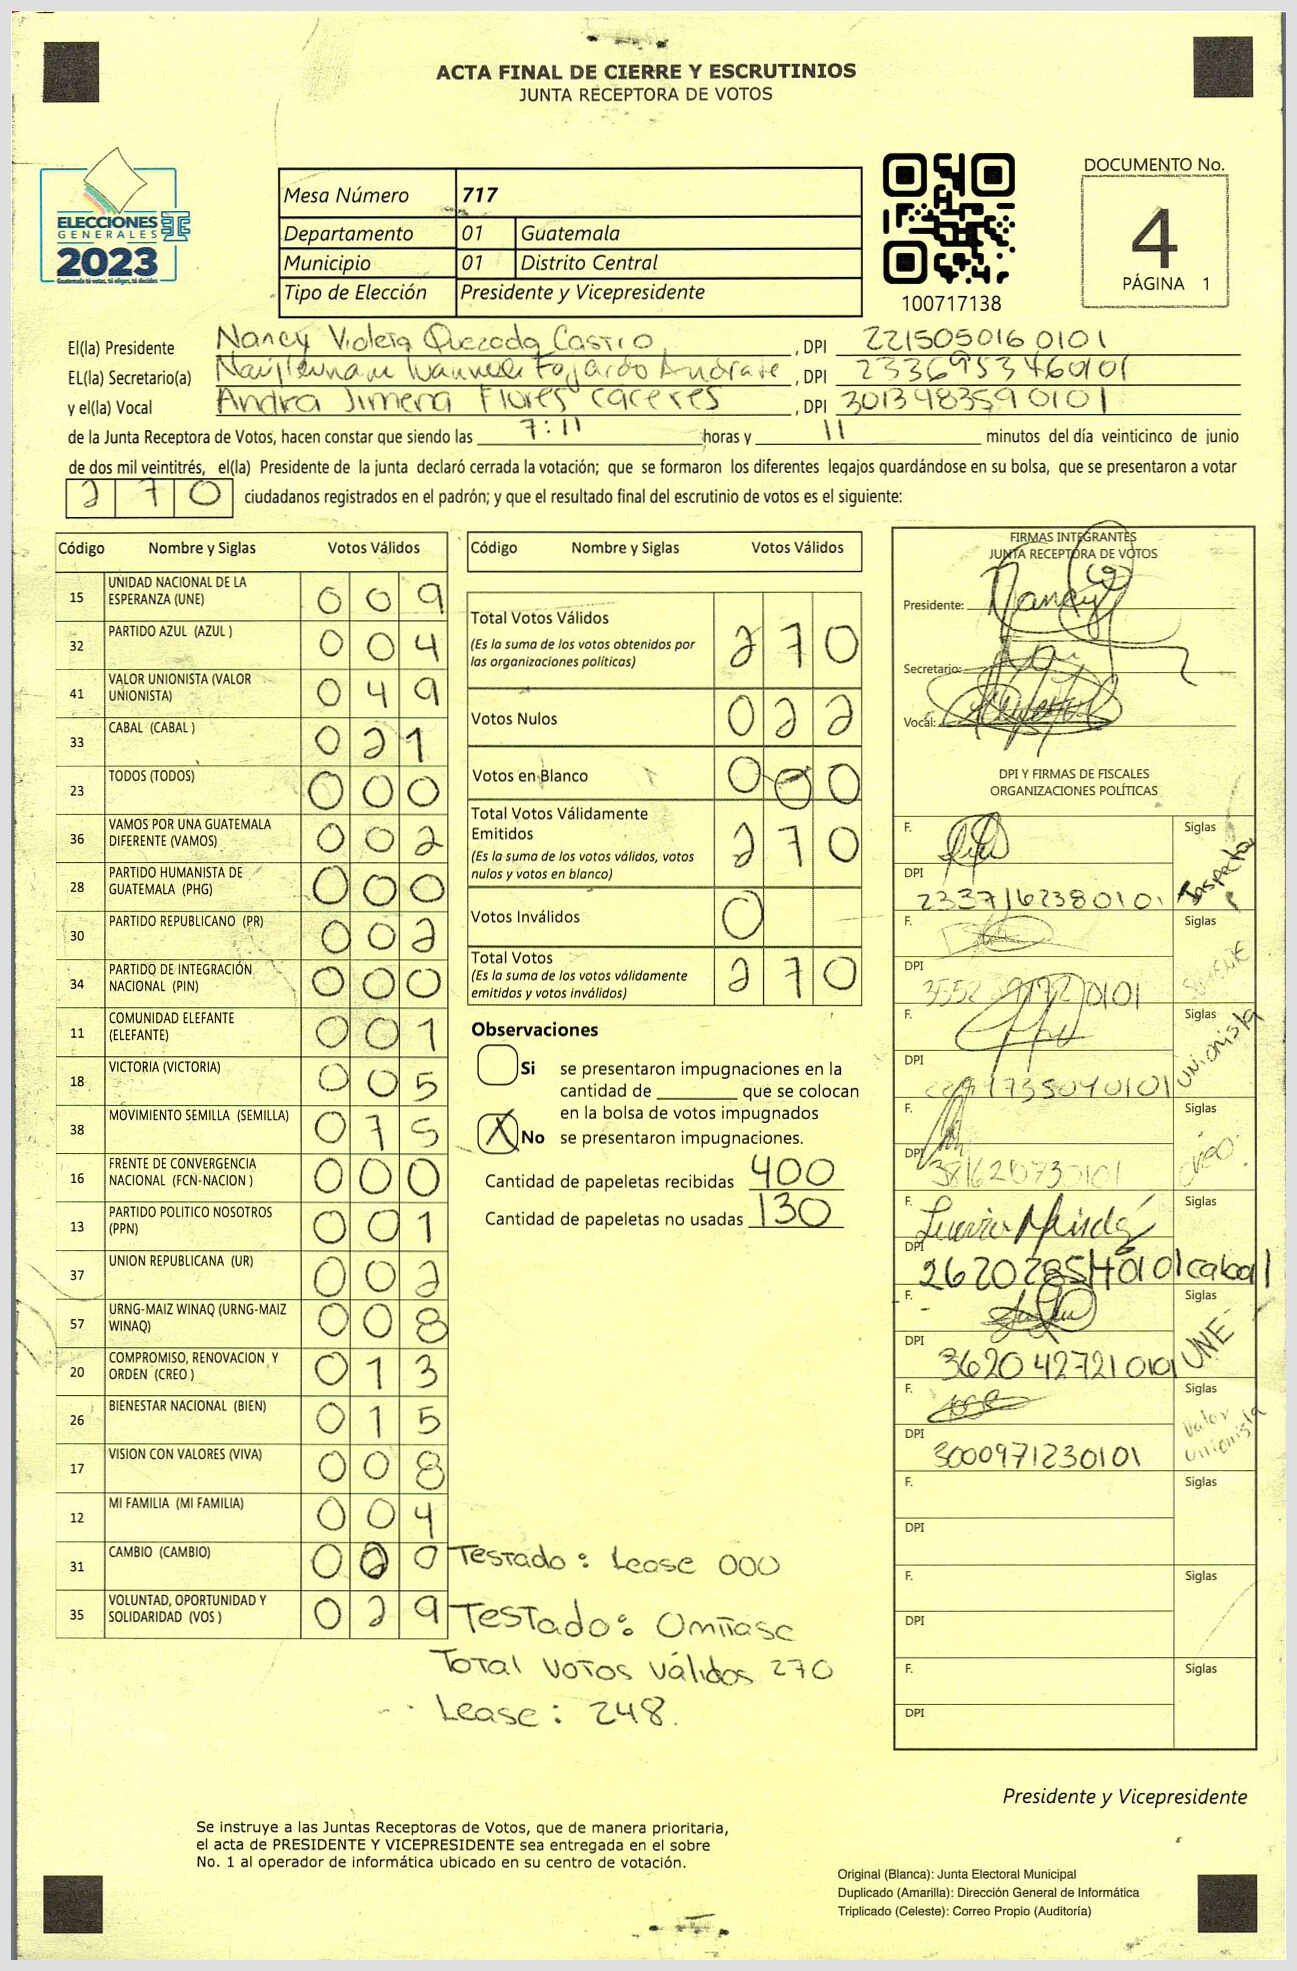 ACTA FINAL DE CIERRE Y ESCRUTINIOS
JUNTA RECEPTORA DE VOTOS
ELECCIONES
GENERALES
2023
Guatemala tú votas, tú eliges, tú decides
Mesa Número 717
Departamento 01 Guatemala
Municipio 01 Distrito Central
Tipo de Elección Presidente y Vicepresidente
100717138
DOCUMENTO No.
4
PÁGINA 1
El(la) Presidente Nancy Violeta Quezada Castro, DPI 2215050160101
EL(la) Secretario(a) Fajardo Andrade, DPI 2336953460101
y el(la) Vocal Andra Jimena Flores Caceres, DPI 3013483590101
de la Junta Receptora de Votos, hacen constar que siendo las 7:11 horas y 11 minutos del día veinticinco de junio
de dos mil veintitrés, el(la) Presidente de la junta declaró cerrada la votación; que se formaron los diferentes legajos quardándose en su bolsa, que se presentaron a votar
270 ciudadanos registrados en el padrón; y que el resultado final del escrutinio de votos es el siguiente:
Código Nombre y Siglas Votos Válidos
15 UNIDAD NACIONAL DE LA ESPERANZA (UNE) 009
32 PARTIDO AZUL (AZUL ) 004
41 VALOR UNIONISTA (VALOR UNIONISTA) 049
33 CABAL (CABAL ) 021
23 TODOS (TODOS) 000
36 VAMOS POR UNA GUATEMALA DIFERENTE (VAMOS) 002
28 PARTIDO HUMANISTA DE GUATEMALA (PHG) 000
30 PARTIDO REPUBLICANO (PR) 002
34 PARTIDO DE INTEGRACIÓN NACIONAL (PIN) 000
11 COMUNIDAD ELEFANTE (ELEFANTE) 001
18 VICTORIA (VICTORIA) 005
38 MOVIMIENTO SEMILLA (SEMILLA) 075
16 FRENTE DE CONVERGENCIA NACIONAL (FCN-NACION ) 000
13 PARTIDO POLITICO NOSOTROS (PPN) 001
37 UNION REPUBLICANA (UR) 002
57 URNG-MAIZ WINAQ (URNG-MAIZ WINAQ) 008
20 COMPROMISO, RENOVACION Y ORDEN (CREO ) 013
26 BIENESTAR NACIONAL (BIEN) 015
17 VISION CON VALORES (VIVA) 008
12 MI FAMILIA (MI FAMILIA) 004
31 CAMBIO (CAMBIO) 000 Testado: Lease 000
35 VOLUNTAD, OPORTUNIDAD Y SOLIDARIDAD (VOS ) 029 Testado: Omitase
Total votos válidos 270
Lease: 248.
Código Nombre y Siglas Votos Válidos
Total Votos Válidos 270
(Es la suma de los votos obtenidos por
las organizaciones politicas)
Votos Nulos 022
Votos en Blanco 000
Total Votos Válidamente
Emitidos 270
(Es la suma de los votos válidos, votos
nulos y votos en blanco)
Votos Inválidos 0
Total Votos 270
(Es la suma de los votos válidamente
emitidos y votos inválidos)
Observaciones
Si se presentaron impugnaciones en la
cantidad de ________ que se colocan
en la bolsa de votos impugnados
X No se presentaron impugnaciones.
Cantidad de papeletas recibidas 400
Cantidad de papeletas no usadas 130
FIRMAS INTEGRANTES
JUNTA RECEPTORA DE VOTOS
Presidente: Nancy
Secretario:
Vocal:
DPI Y FIRMAS DE FISCALES
ORGANIZACIONES POLÍTICAS
F. Siglas
DPI 2337162380101
F. Siglas
DPI
F. Siglas Unionista
DPI
F. Siglas creo
DPI 381620730101
F. Siglas cabal
DPI
F. Siglas UNE
DPI 3620427210101
F. Siglas Valor Unionista
DPI 3000971230101
F. Siglas
DPI
F. Siglas
DPI
F. Siglas
DPI
Presidente y Vicepresidente
Se instruye a las Juntas Receptoras de Votos, que de manera prioritaria,
el acta de PRESIDENTE Y VICEPRESIDENTE sea entregada en el sobre
No. 1 al operador de informática ubicado en su centro de votación.
Original (Blanca): Junta Electoral Municipal
Duplicado (Amarilla): Dirección General de Informática
Triplicado (Celeste): Correo Propio (Auditoría)